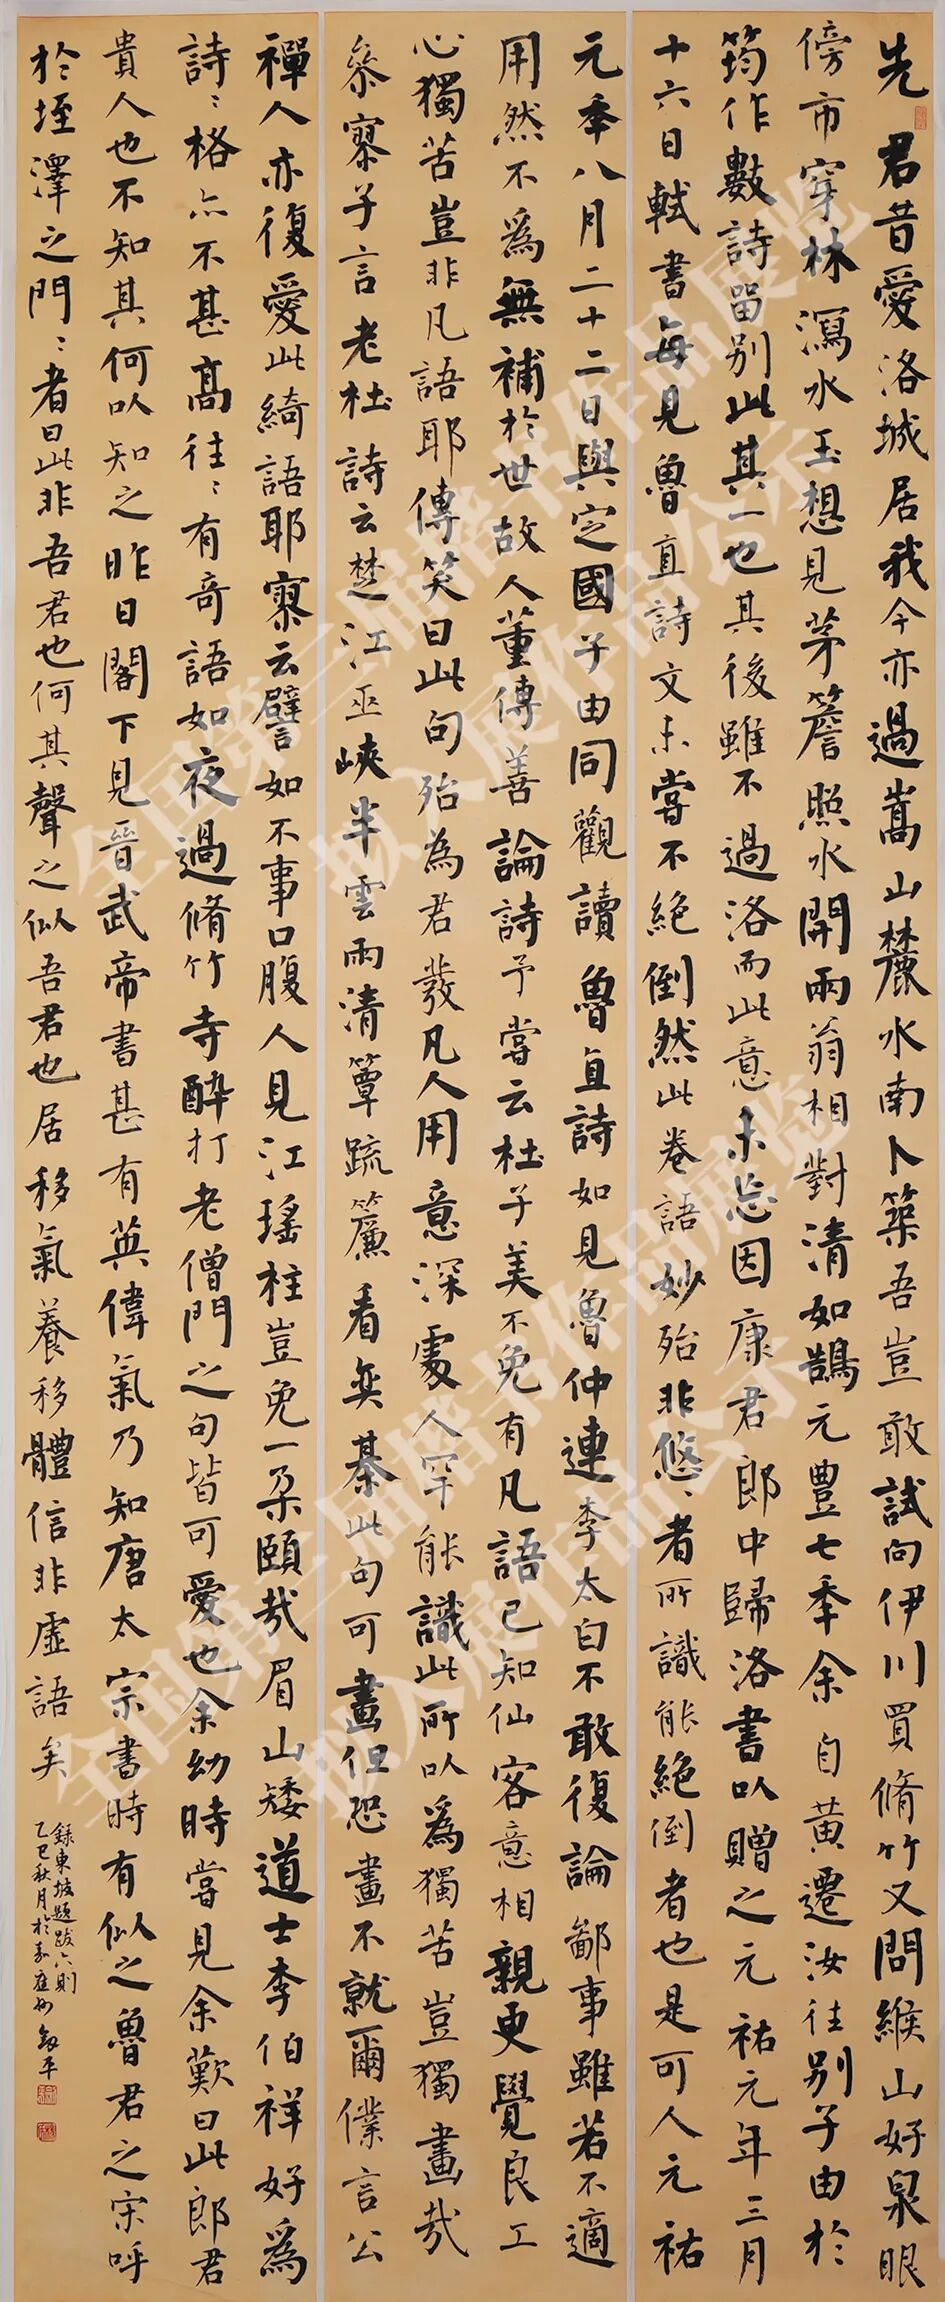 先君昔愛洛城居我今亦過嵩山麓水南卜築吾豈敢試向伊川買脩竹又問緱山好泉眼
傍市穿林瀉水玉想見茅簷照水開兩翁相對清如鵠元豐七季余自黃遷汝往別子由於
筠作數詩留別此其一也其後雖不過洛而此意未忘因康君郎中歸洛書以贈之元祐元年三月
十六日軾書每見魯直詩文未嘗不絕倒然此卷語妙殆非悠〻者所識能絕倒者也是可人元祐
元季八月二十二日與定國子由同觀讀魯直詩如見魯仲連李太白不敢復論鄙事雖若不適
用然不爲無補於世故人董傳善論詩予嘗云杜子美不免有凡語已知仙客意相親更覺良工
心獨苦豈非凡語耶傳笑曰此句殆為君發凡人用意深處人罕能識此所以爲獨苦豈獨畫哉
叅寥子言老杜詩云楚江巫峽半雲雨清簟疏簾看弈棊此句可畫但恐畫不就爾僕言公
禪人亦復愛此綺語耶寥云譬如不事口腹人見江瑤柱豈免一朶頤哉眉山矮道士李伯祥好爲
詩〻格亦不甚高往〻有奇語如夜過脩竹寺醉打老僧門之句皆可愛也余幼時嘗見余歎曰此郎君
貴人也不知其何以知之昨日閣下見晉武帝書甚有英偉氣乃知唐太宗書時有似之魯君之宋呼
於垤澤之門〻者曰此非吾君也何其聲之似吾君也居移氣養移體信非虛語矣
錄東坡題跋六則
乙巳秋月於
全国第三届楷书作品展览
拟入展作品公示
全国第三届楷书作品展览
拟入展作品公示